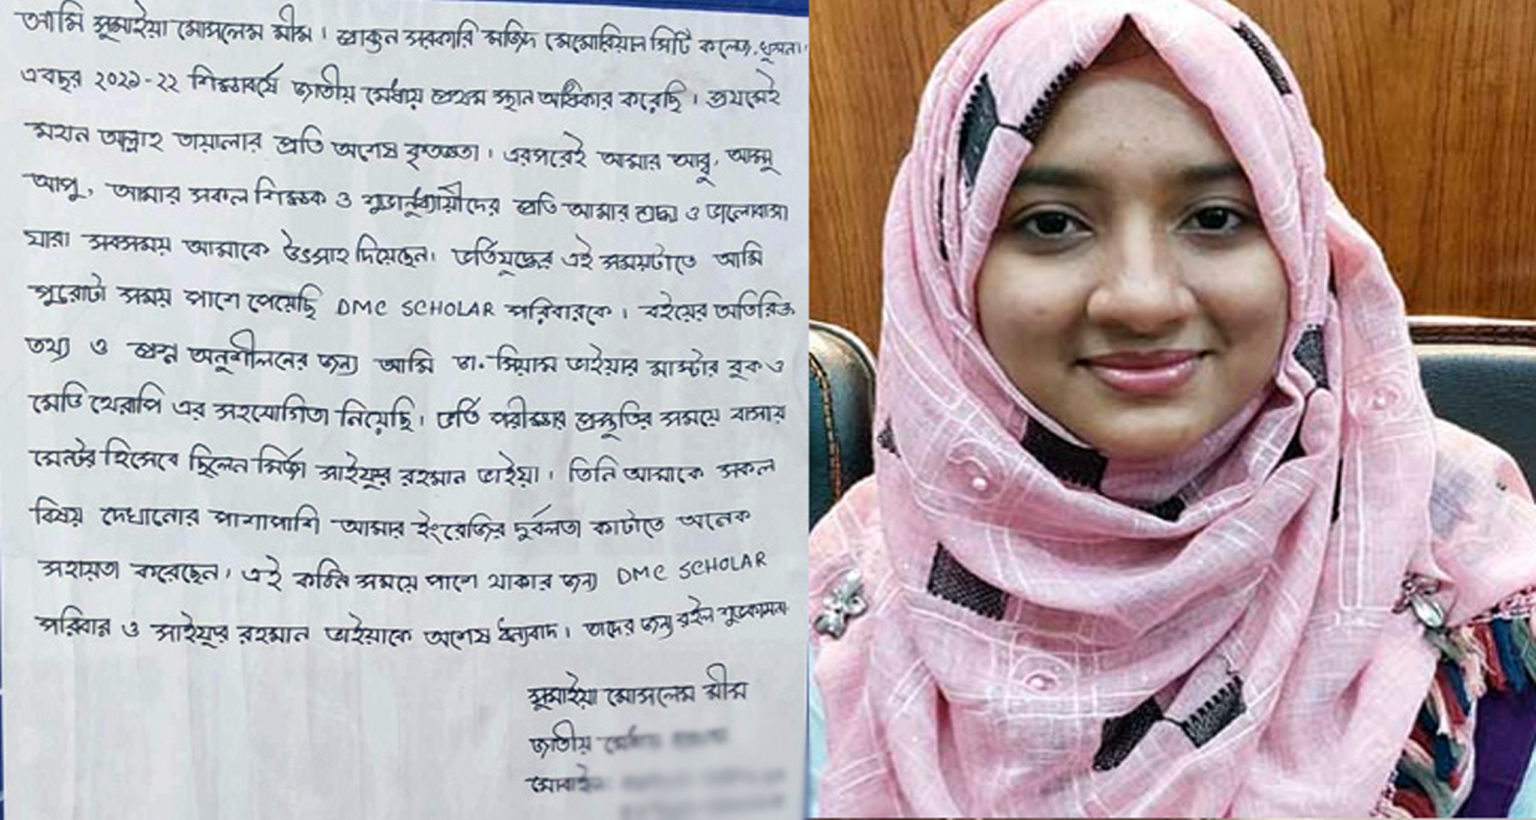 আমি সুমাইয়া মোসলেম মীম। প্রাক্তন সরকারি মজিদ মেমোরিয়াল সিটি কলেজ, খুলনা।
এবছর ২০২১-২২ শিক্ষাবর্ষে জাতীয় মেধায় প্রথম স্থান অধিকার করেছি। প্রথমেই
মহান আল্লাহ তায়ালার প্রতি অশেষ কৃতজ্ঞতা। এরপরেই আমার আব্বু, আম্মু
আপু, আমার সকল শিক্ষক ও শুভানুধ্যায়ীদের প্রতি আমার শ্রদ্ধা ও ভালোবাসা
যারা সবসময় আমাকে উৎসাহ দিয়েছেন। ভর্তিযুদ্ধের এই সময়টাতে আমি
পুরোটা সময় পাশে পেয়েছি DMC SCHOLAR পরিবারকে। বইয়ের অতিরিক্ত
তথ্য ও প্রশ্ন অনুশীলনের জন্য আমি ডা. সিয়াম ভাইয়ার মাস্টার বুক ও
মেডি থেরাপি এর সহযোগিতা নিয়েছি। ভর্তি পরীক্ষার প্রস্তুতির সময়ে বাসায়
মেন্টর হিসেবে ছিলেন মির্জা সাইফুর রহমান ভাইয়া। তিনি আমাকে সকল
বিষয় দেখানোর পাশাপাশি আমার ইংরেজির দুর্বলতা কাটাতে অনেক
সহায়তা করেছেন। এই কঠিন সময়ে পাশে থাকার জন্য DMC SCHOLAR
পরিবার ও সাইফুর রহমান ভাইয়াকে অশেষ ধন্যবাদ। তাদের জন্য রইল শুভকামনা
সুমাইয়া মোসলেম মীম
জাতীয় মেধায়
মোবাইল